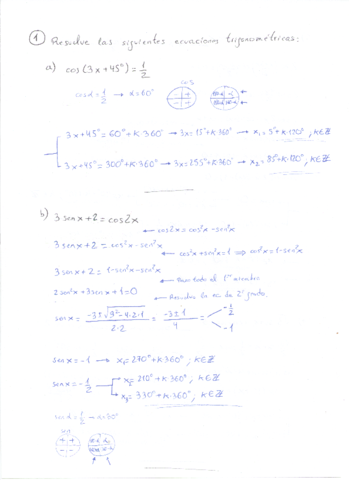 1 Resuelve las siguientes ecuaciones trigonométricas:
a) cos(3x+45°) = 1/2
cos α = 1/2 → α = 60°
cos
3x+45° = 60°+K·360° → 3x = 15°+K·360° → x₁ = 5°+K·120°, K∈ℤ
3x+45° = 300°+K·360° → 3x = 255°+K·360° → x₂ = 85°+K·120°, K∈ℤ
b) 3 sen x + 2 = cos 2x
← cos 2x = cos²x - sen²x
3 sen x + 2 = cos²x - sen²x
← cos²x + sen²x = 1 ⇒ cos²x = 1 - sen²x
3 sen x + 2 = 1 - sen²x - sen²x
← Pasar todo al 1er miembro
2 sen²x + 3 sen x + 1 = 0
← Resolver la ec. de 2º grado.
sen x = (-3 ± √(3² - 4·2·1)) / (2·2) = (-3 ± 1) / 4 = -1/2
-1
sen x = -1 → x₁ = 270°+K·360°; K∈ℤ
sen x = -1/2 → x₂ = 210°+K·360°, K∈ℤ
→ x₃ = 330°+K·360°, K∈ℤ
sen α = 1/2 → α = 30°
sen